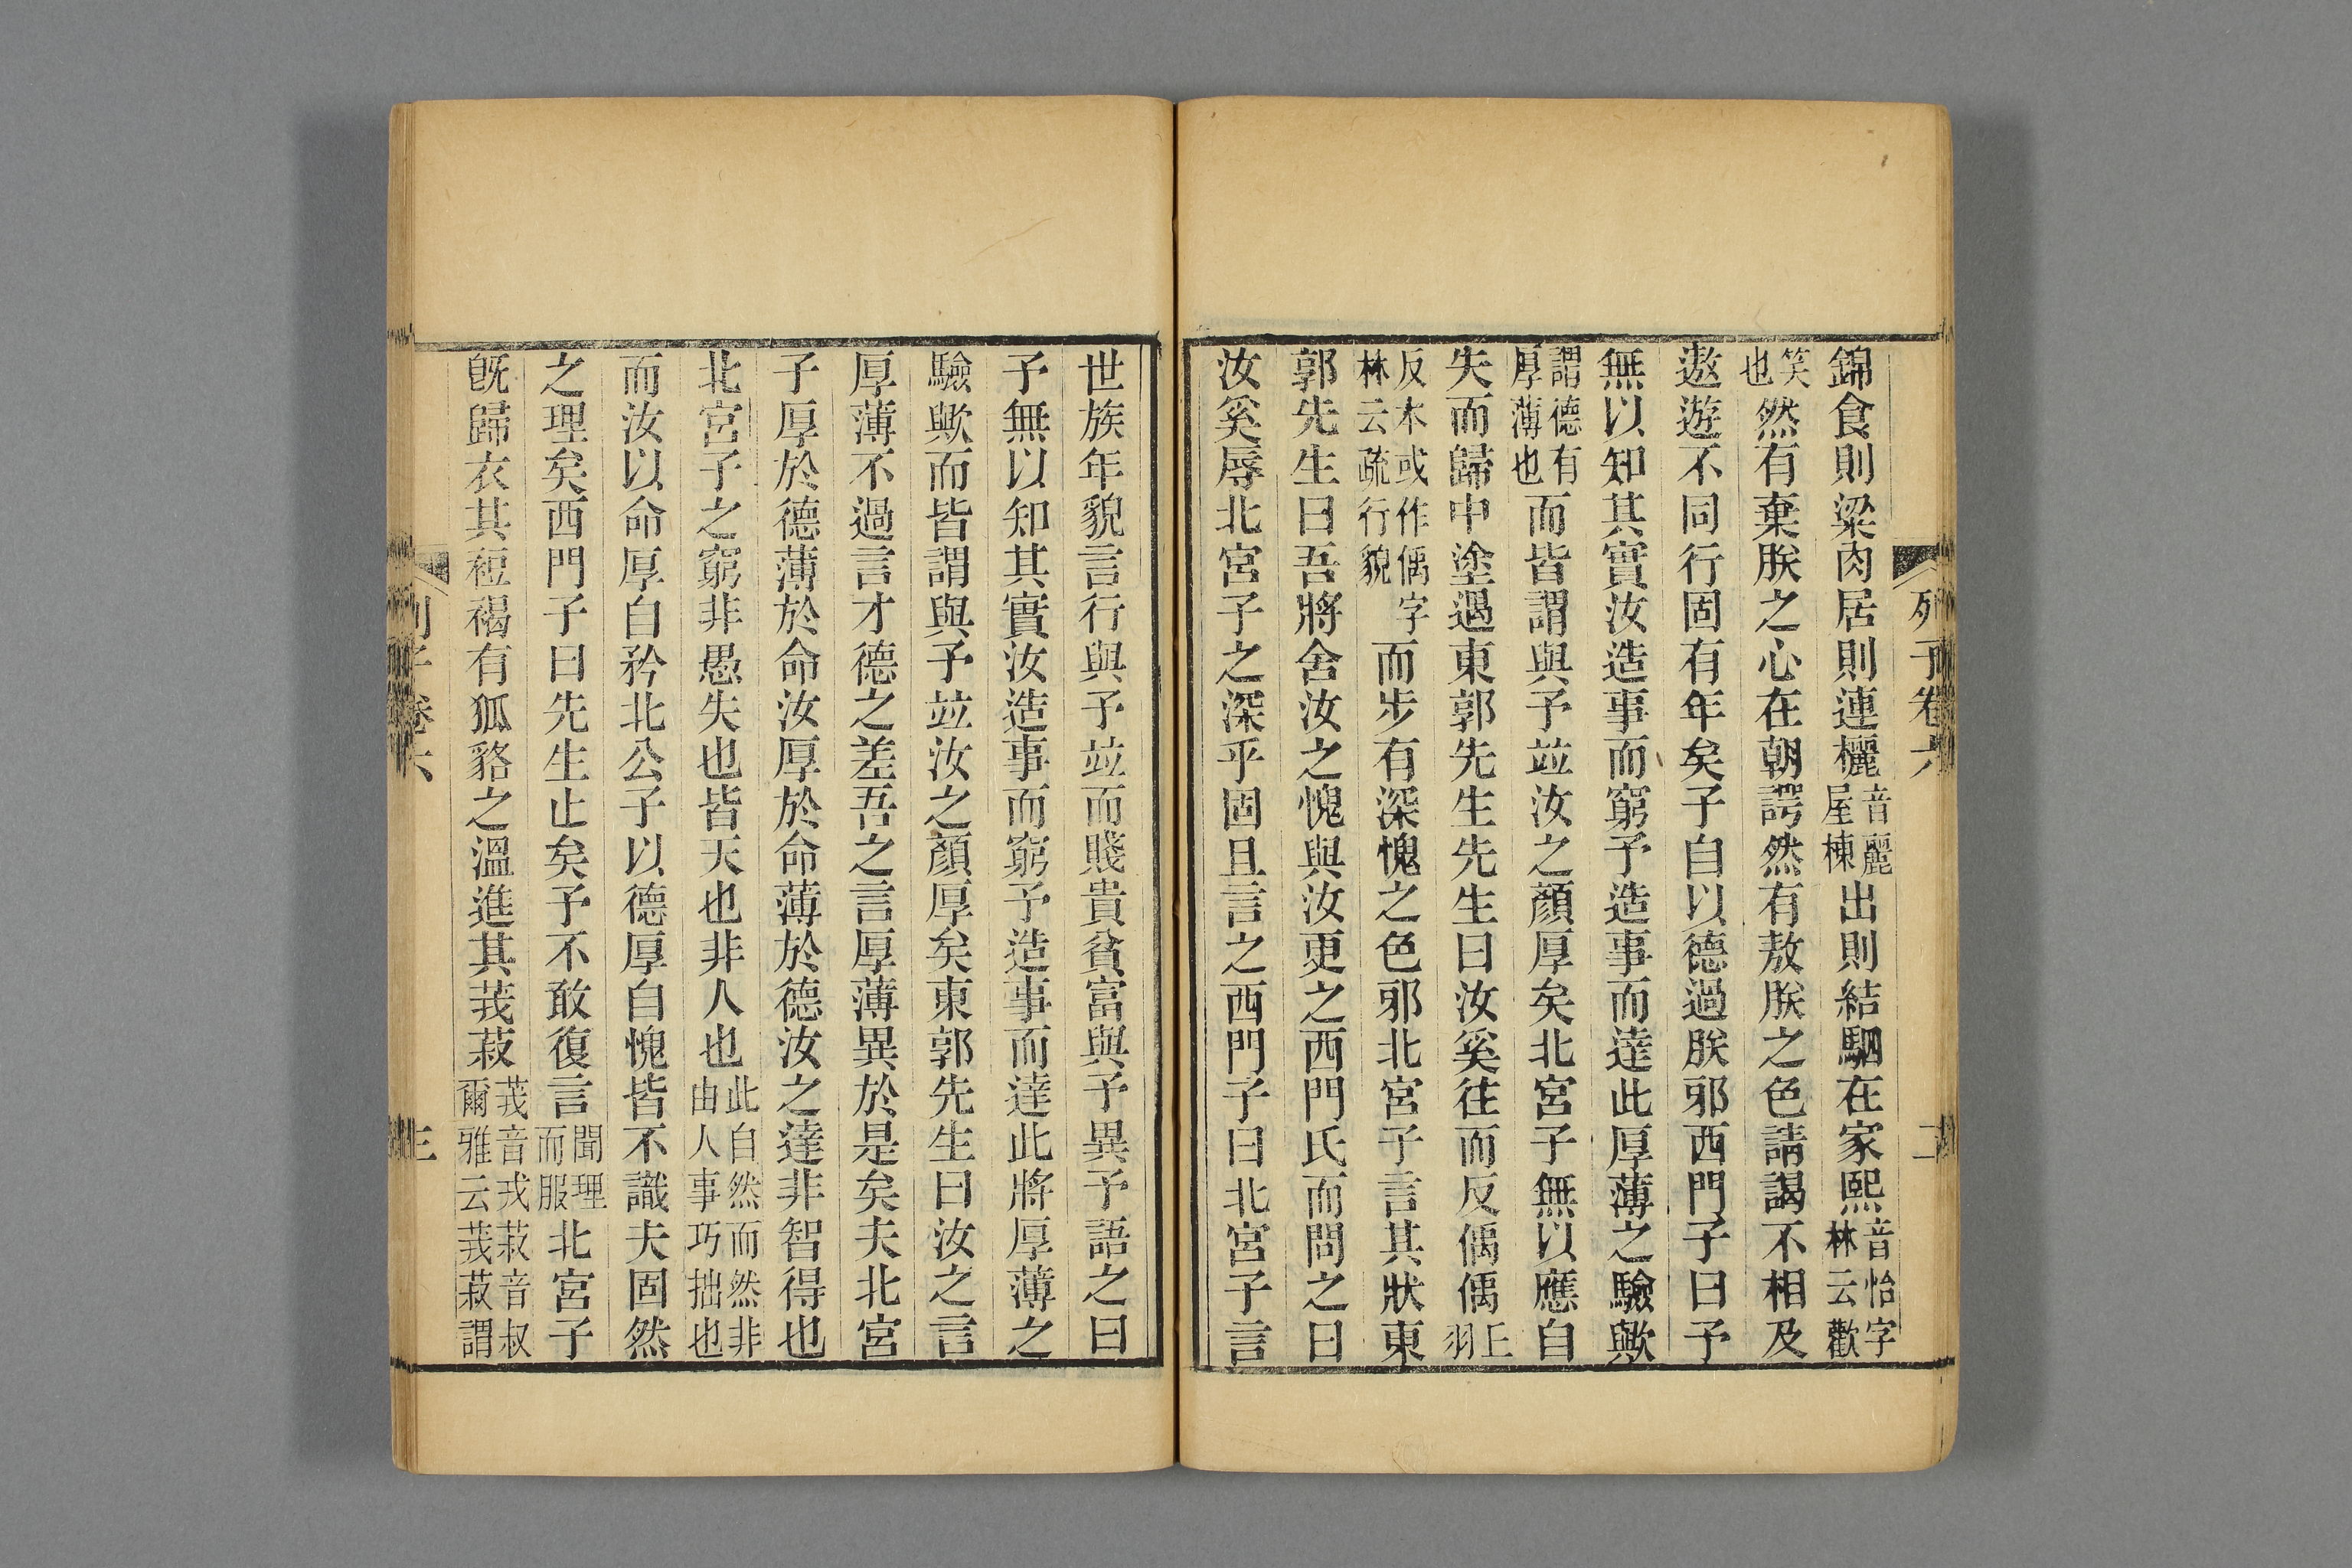 列子卷六 二
錦食則粱肉居則連欐音麗屋棟出則結駟在家熙音怡字林云歡
笑也然有棄朕之心在朝諤然有敖朕之色請謁不相及
遨遊不同行固有年矣子自以德過朕邪西門子曰予
無以知其實汝造事而窮予造事而達此厚薄之驗歟
謂德有厚薄也而皆謂與予竝汝之顏厚矣北宮子無以應自
失而歸中塗遇東郭先生先生曰汝奚往而反偊偊丘羽
反本或作偊字林云疏行貌而步有深愧之色邪北宮子言其狀東
郭先生曰吾將舍汝之愧與汝更之西門氏而問之曰
汝奚辱北宮子之深乎固且言之西門子曰北宮子言
世族年貌言行與予竝而賤貴貧富與予異予語之曰
予無以知其實汝造事而窮予造事而達此將厚薄之
驗歟而皆謂與予竝汝之顏厚矣東郭先生曰汝之言
厚薄不過言才德之差吾之言厚薄異於是矣夫北宮
子厚於德薄於命汝厚於命薄於德汝之達非智得也
北宮子之窮非愚失也皆天也非人也此自然而然非由人事巧拙也
而汝以命厚自矜北公子以德厚自愧皆不識夫固然
之理矣西門子曰先生止矣予不敢復言聞理而服北宮子
旣歸衣其裋褐有狐貉之溫進其茙菽茙音戎菽音叔爾雅云茙菽謂
列子卷六 三